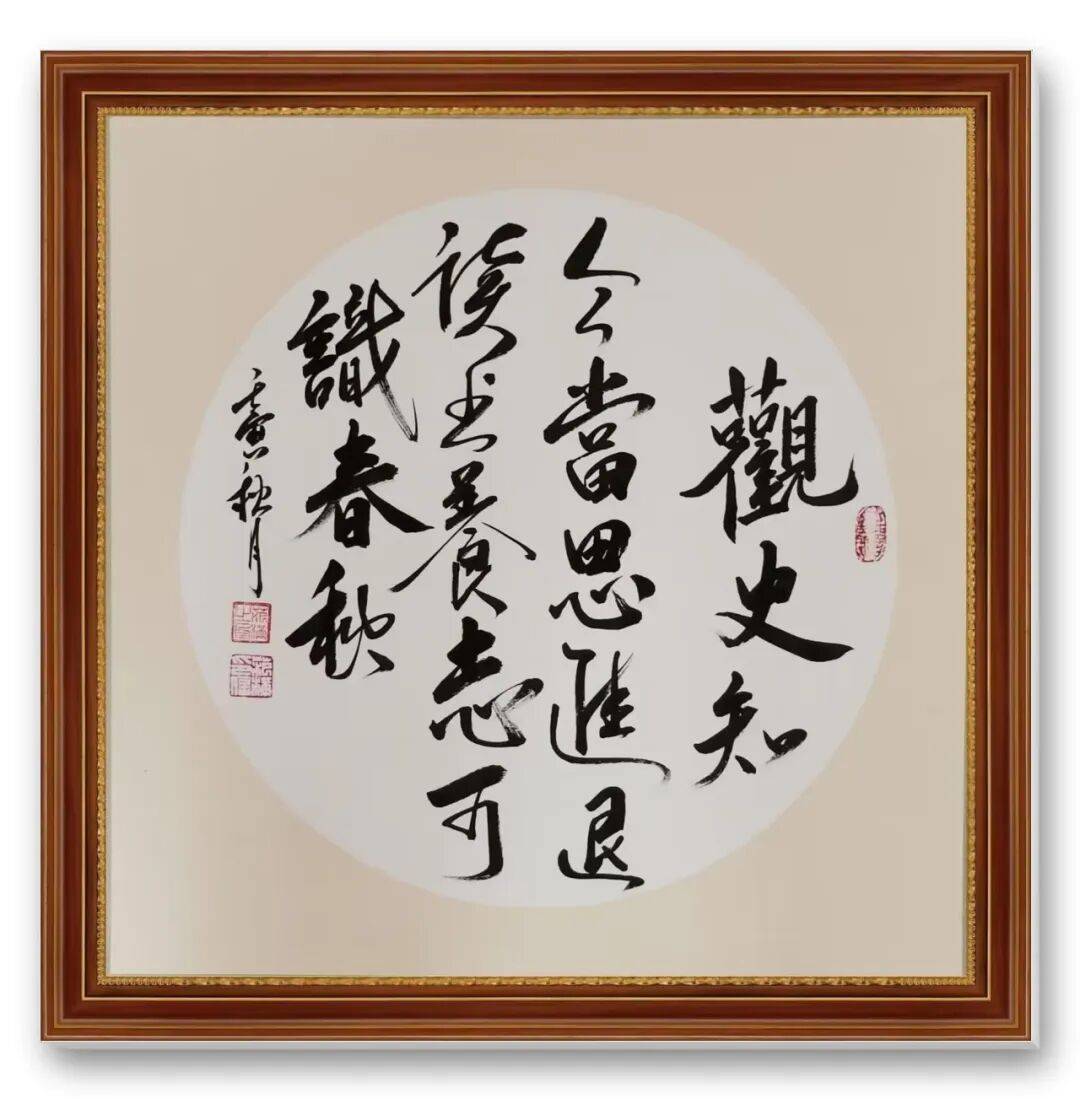 觀史知
今當思進退
读书養志可
識春秋
秋月